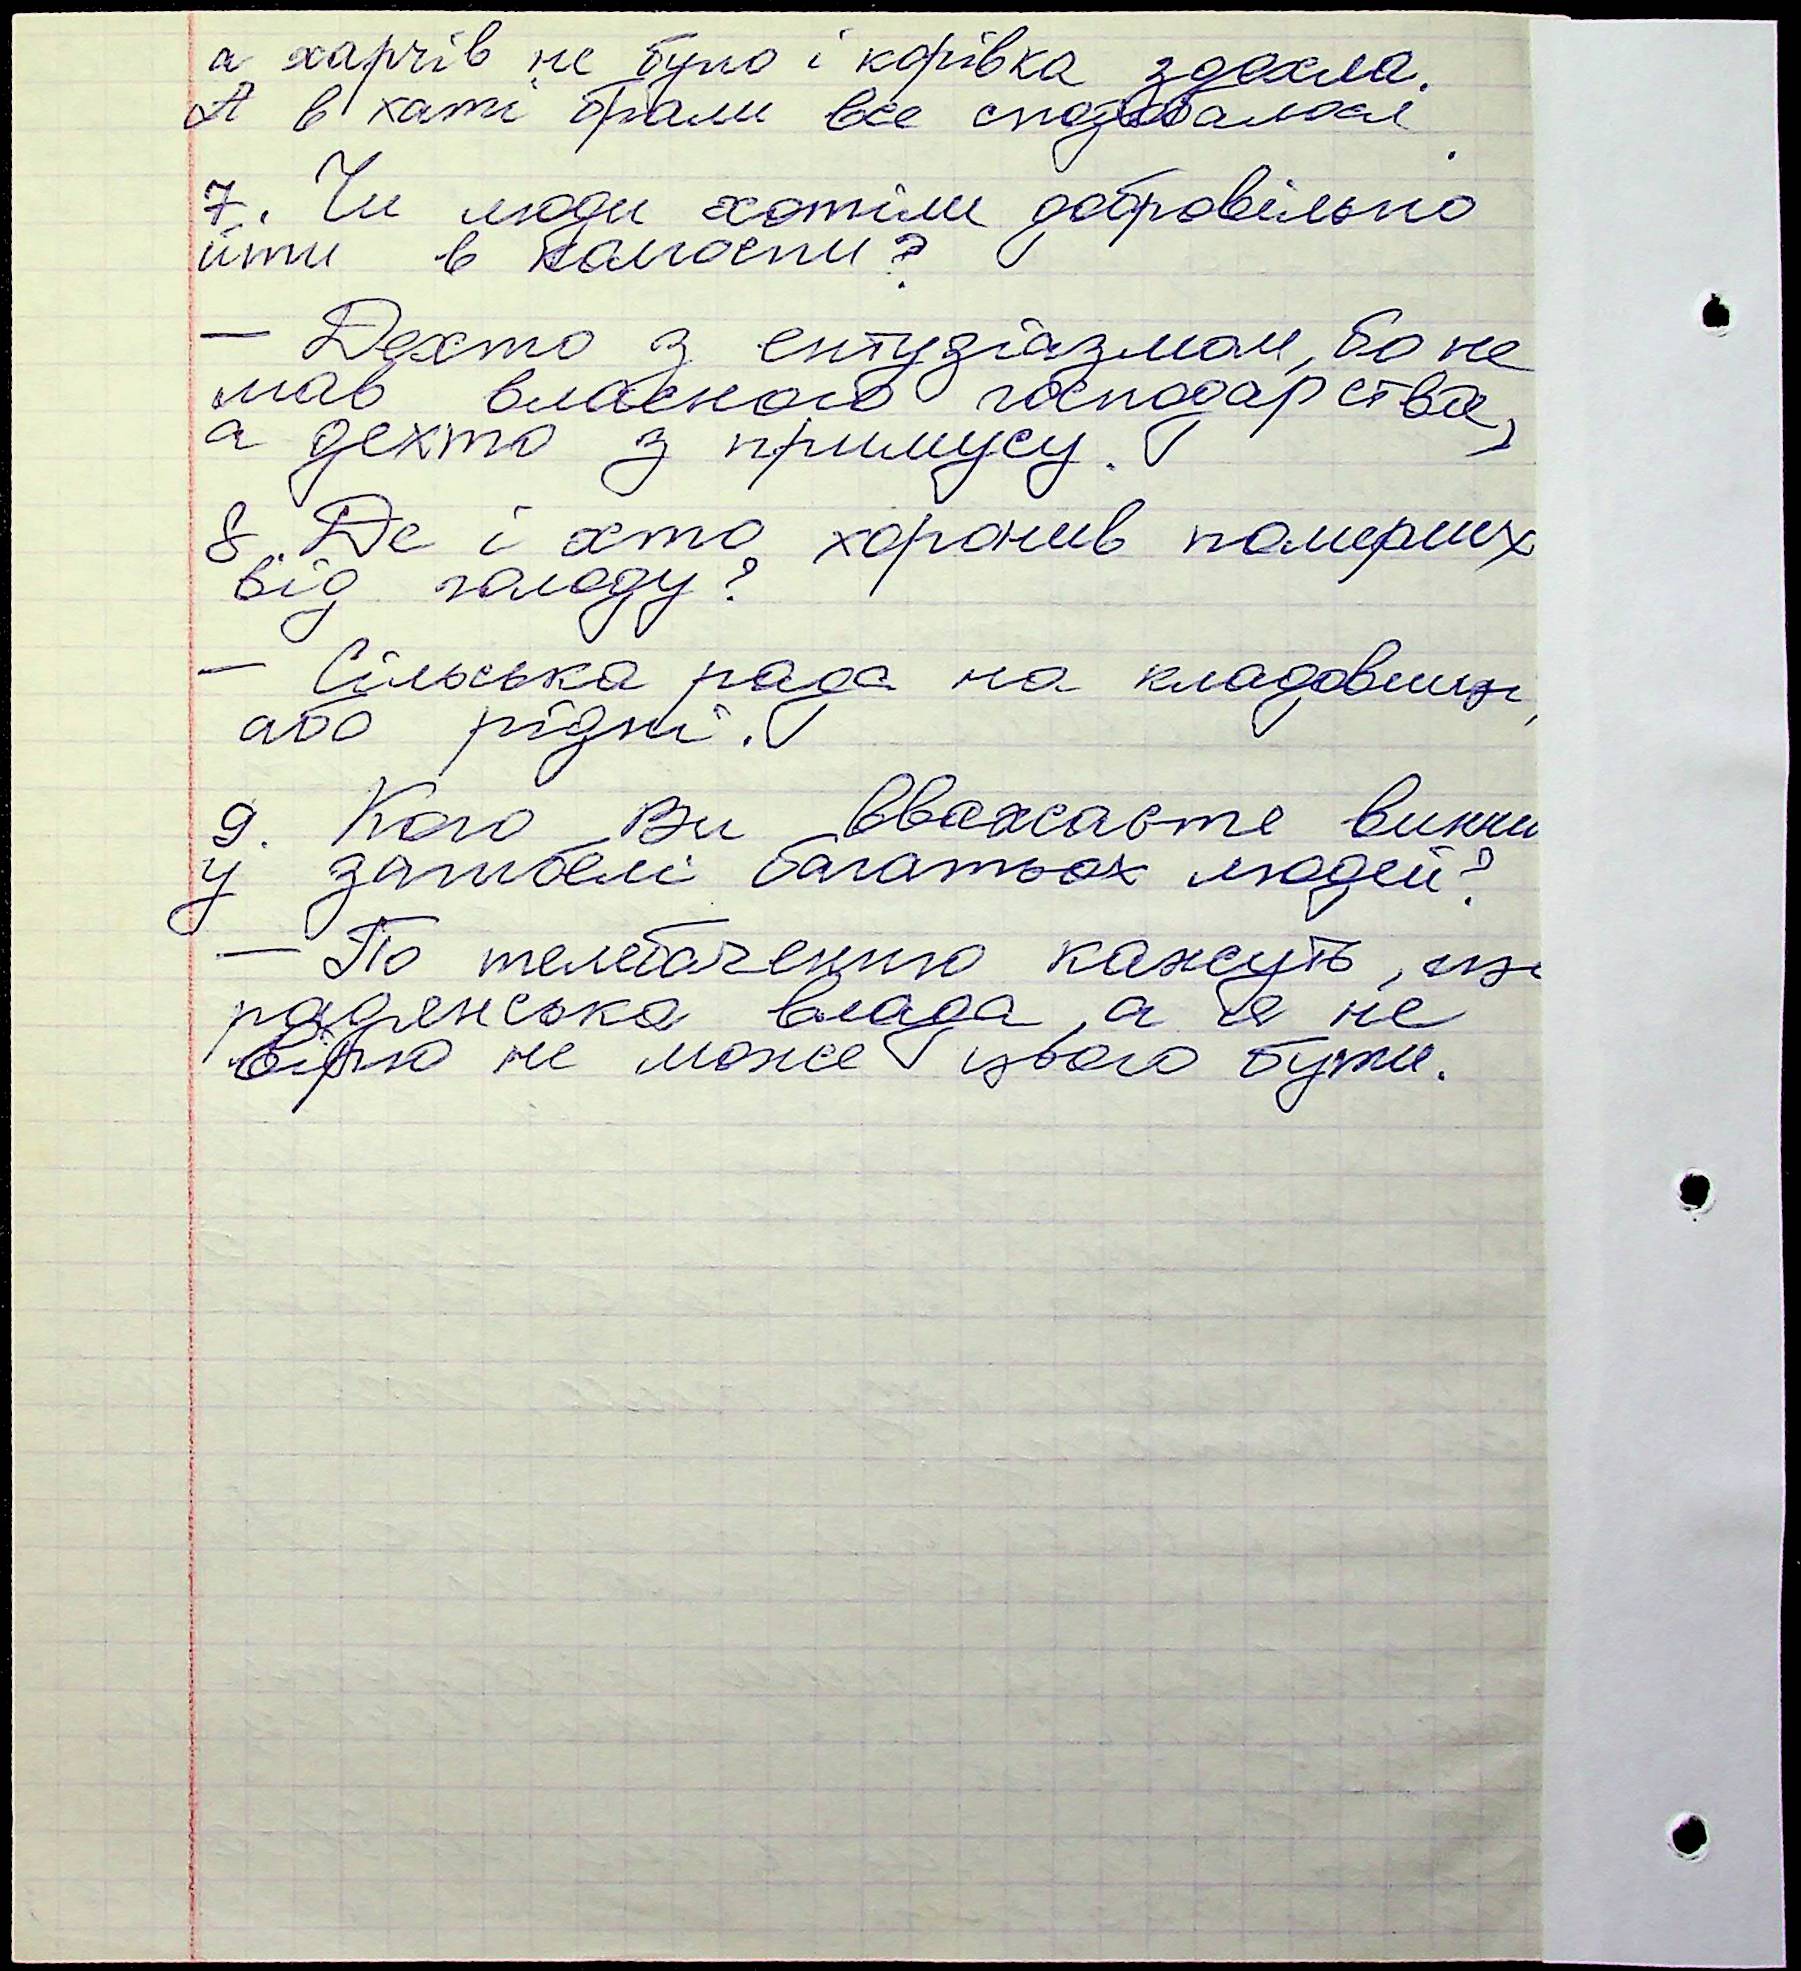 а харчів не було і корівка здохла.
А в хаті брали все сподобалося.
7. Чи люди хотіли добровільно
йти в колгоспи?
— Дехто з ентузіазмом, бо не
мав власного господарства,
а дехто з примусу.
8. Де і хто хоронив померших
від голоду?
— Сільська рада на кладовищі,
або рідні.
9. Кого Ви вважаєте винни
у загибелі багатьох людей?
— По телебаченню кажуть, що
радянська влада, а я не
вірю не може цього бути.